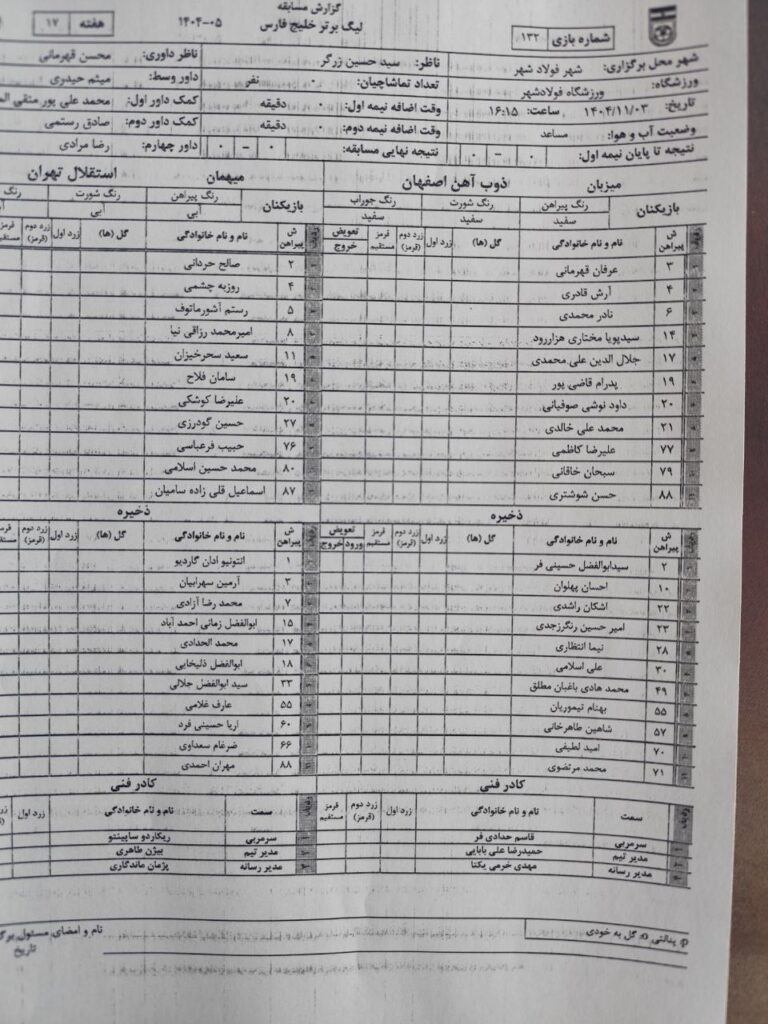 گزارش مسابقه
لیگ برتر خلیج فارس
۱۴۰۴-۰۵
هفته ۱۷
شماره بازی ۱۳۲
شهر محل برگزاری: شهر فولاد شهر
ورزشگاه: ورزشگاه فولادشهر
تاریخ: ۱۴۰۴/۱۱/۰۳ ساعت: ۱۶:۱۵
وضعیت آب و هوا: مساعد
نتیجه تا پایان نیمه اول: ۰ - ۰
ناظر: سید حسین زرگر
تعداد تماشاچیان: ۰ نفر
وقت اضافه نیمه اول: ۰ دقیقه
وقت اضافه نیمه دوم: ۰ دقیقه
نتیجه نهایی مسابقه: ۰ - ۰
ناظر داوری: محسن قهرمانی
داور وسط: میثم حیدری
کمک داور اول: محمد علی پور متقی
کمک داور دوم: صادق رستمی
داور چهارم: رضا مرادی
میزبان ذوب آهن اصفهان
بازیکنان رنگ پیراهن رنگ شورت رنگ جوراب
سفید سفید سفید
ردیف ش پیراهن نام و نام خانوادگی گل (ها) زرد اول زرد دوم (قرمز) قرمز مستقیم تعویض خروج
۳ عرفان قهرمانی
۴ آرش قادری
۶ نادر محمدی
۱۴ سیدپویا مختاری هزاررود
۱۷ جلال الدین علی محمدی
۱۹ پدرام قاضی پور
۲۰ داود نوشی صوفیانی
۲۱ محمد علی خالدی
۷۷ علیرضا کاظمی
۷۹ سبحان خاقانی
۸۸ حسن شوشتری
ذخیره
ردیف ش پیراهن نام و نام خانوادگی گل (ها) زرد اول زرد دوم (قرمز) قرمز مستقیم تعویض ورود خروج
۲ سیدابوالفضل حسینی فر
۱۰ احسان پهلوان
۲۲ اشکان راشدی
۲۳ امیر حسین رنگرزجدی
۲۸ نیما انتظاری
۳۰ علی اسلامی
۴۹ محمد هادی باغبان مطلق
۵۵ بهنام تیموریان
۵۷ شاهین طاهرخانی
۷۰ امید لطیفی
۷۱ محمد مرتضوی
کادر فنی
ردیف سمت نام و نام خانوادگی زرد اول زرد دوم (قرمز) قرمز مستقیم
۱ سرمربی قاسم حدادی فر
۲ مدیر تیم حمیدرضا علی بابایی
۳ مدیر رسانه مهدی خرمی یکتا
میهمان استقلال تهران
بازیکنان رنگ پیراهن رنگ شورت
آبی آبی
ردیف ش پیراهن نام و نام خانوادگی گل (ها) زرد اول زرد دوم (قرمز) قرمز مستقیم
۲ صالح حردانی
۴ روزبه چشمی
۵ رستم آشورماتوف
۸ امیرمحمد رزاقی نیا
۱۱ سعید سحرخیزان
۱۹ سامان فلاح
۲۰ علیرضا کوشکی
۲۷ حسین گودرزی
۷۶ حبیب فرعباسی
۸۰ محمد حسین اسلامی
۸۷ اسماعیل قلی زاده سامیان
ذخیره
ردیف ش پیراهن نام و نام خانوادگی گل (ها) زرد اول زرد دوم (قرمز) قرمز مستقیم
۱ انتونیو ادان گاردیو
۳ آرمین سهرابیان
۷ محمد رضا آزادی
۱۵ ابوالفضل زمانی احمد آباد
۱۷ محمد الحدادی
۱۸ ابوالفضل ذلیخایی
۳۳ سید ابوالفضل جلالی
۵۵ عارف غلامی
۶۰ آریا حسینی فرد
۶۶ ضرغام سعداوی
۸۸ مهران احمدی
کادر فنی
ردیف سمت نام و نام خانوادگی زرد اول زرد دوم (قرمز)
۱ سرمربی ریکاردو ساپینتو
۲ مدیر تیم بیژن طاهری
۳ مدیر رسانه پژمان ماندگاری
P: پنالتی O: گل به خودی
نام و امضای مسئول
تاریخ